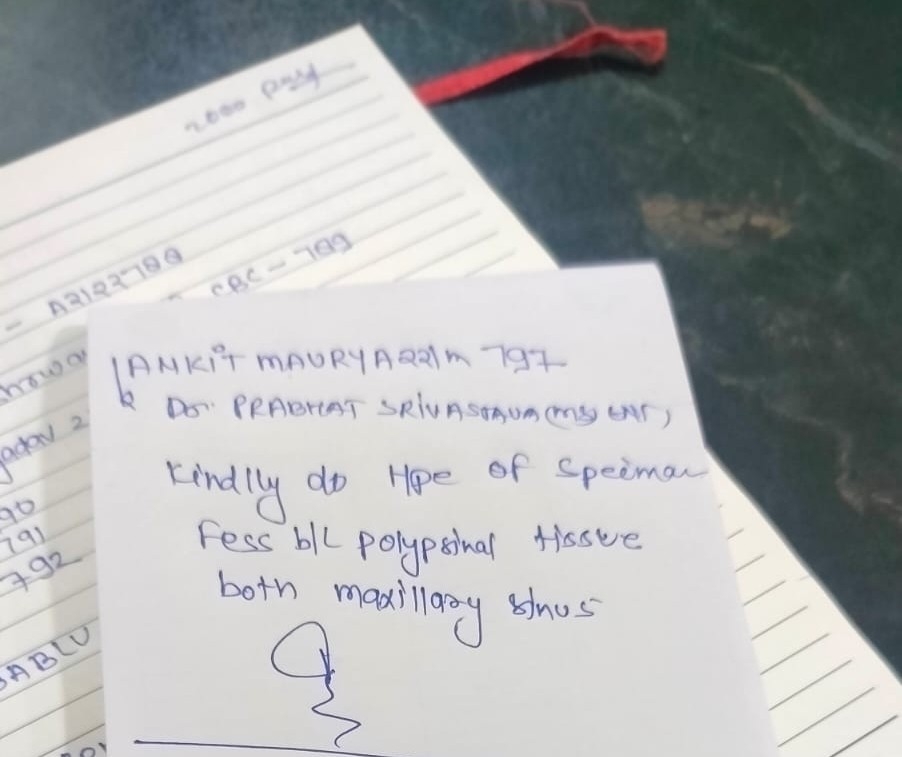 2000 pay
- A2122788
CBC - 789
yadav 2
90
791
792
BABLU
ANKIT MAURYA 22/m 797
Dr. PRABHAT SRIVASTAVA (MS ENT)
Kindly do Hpe of Speciman
Fess b/L polypsinal tissue
both maxillary sinus